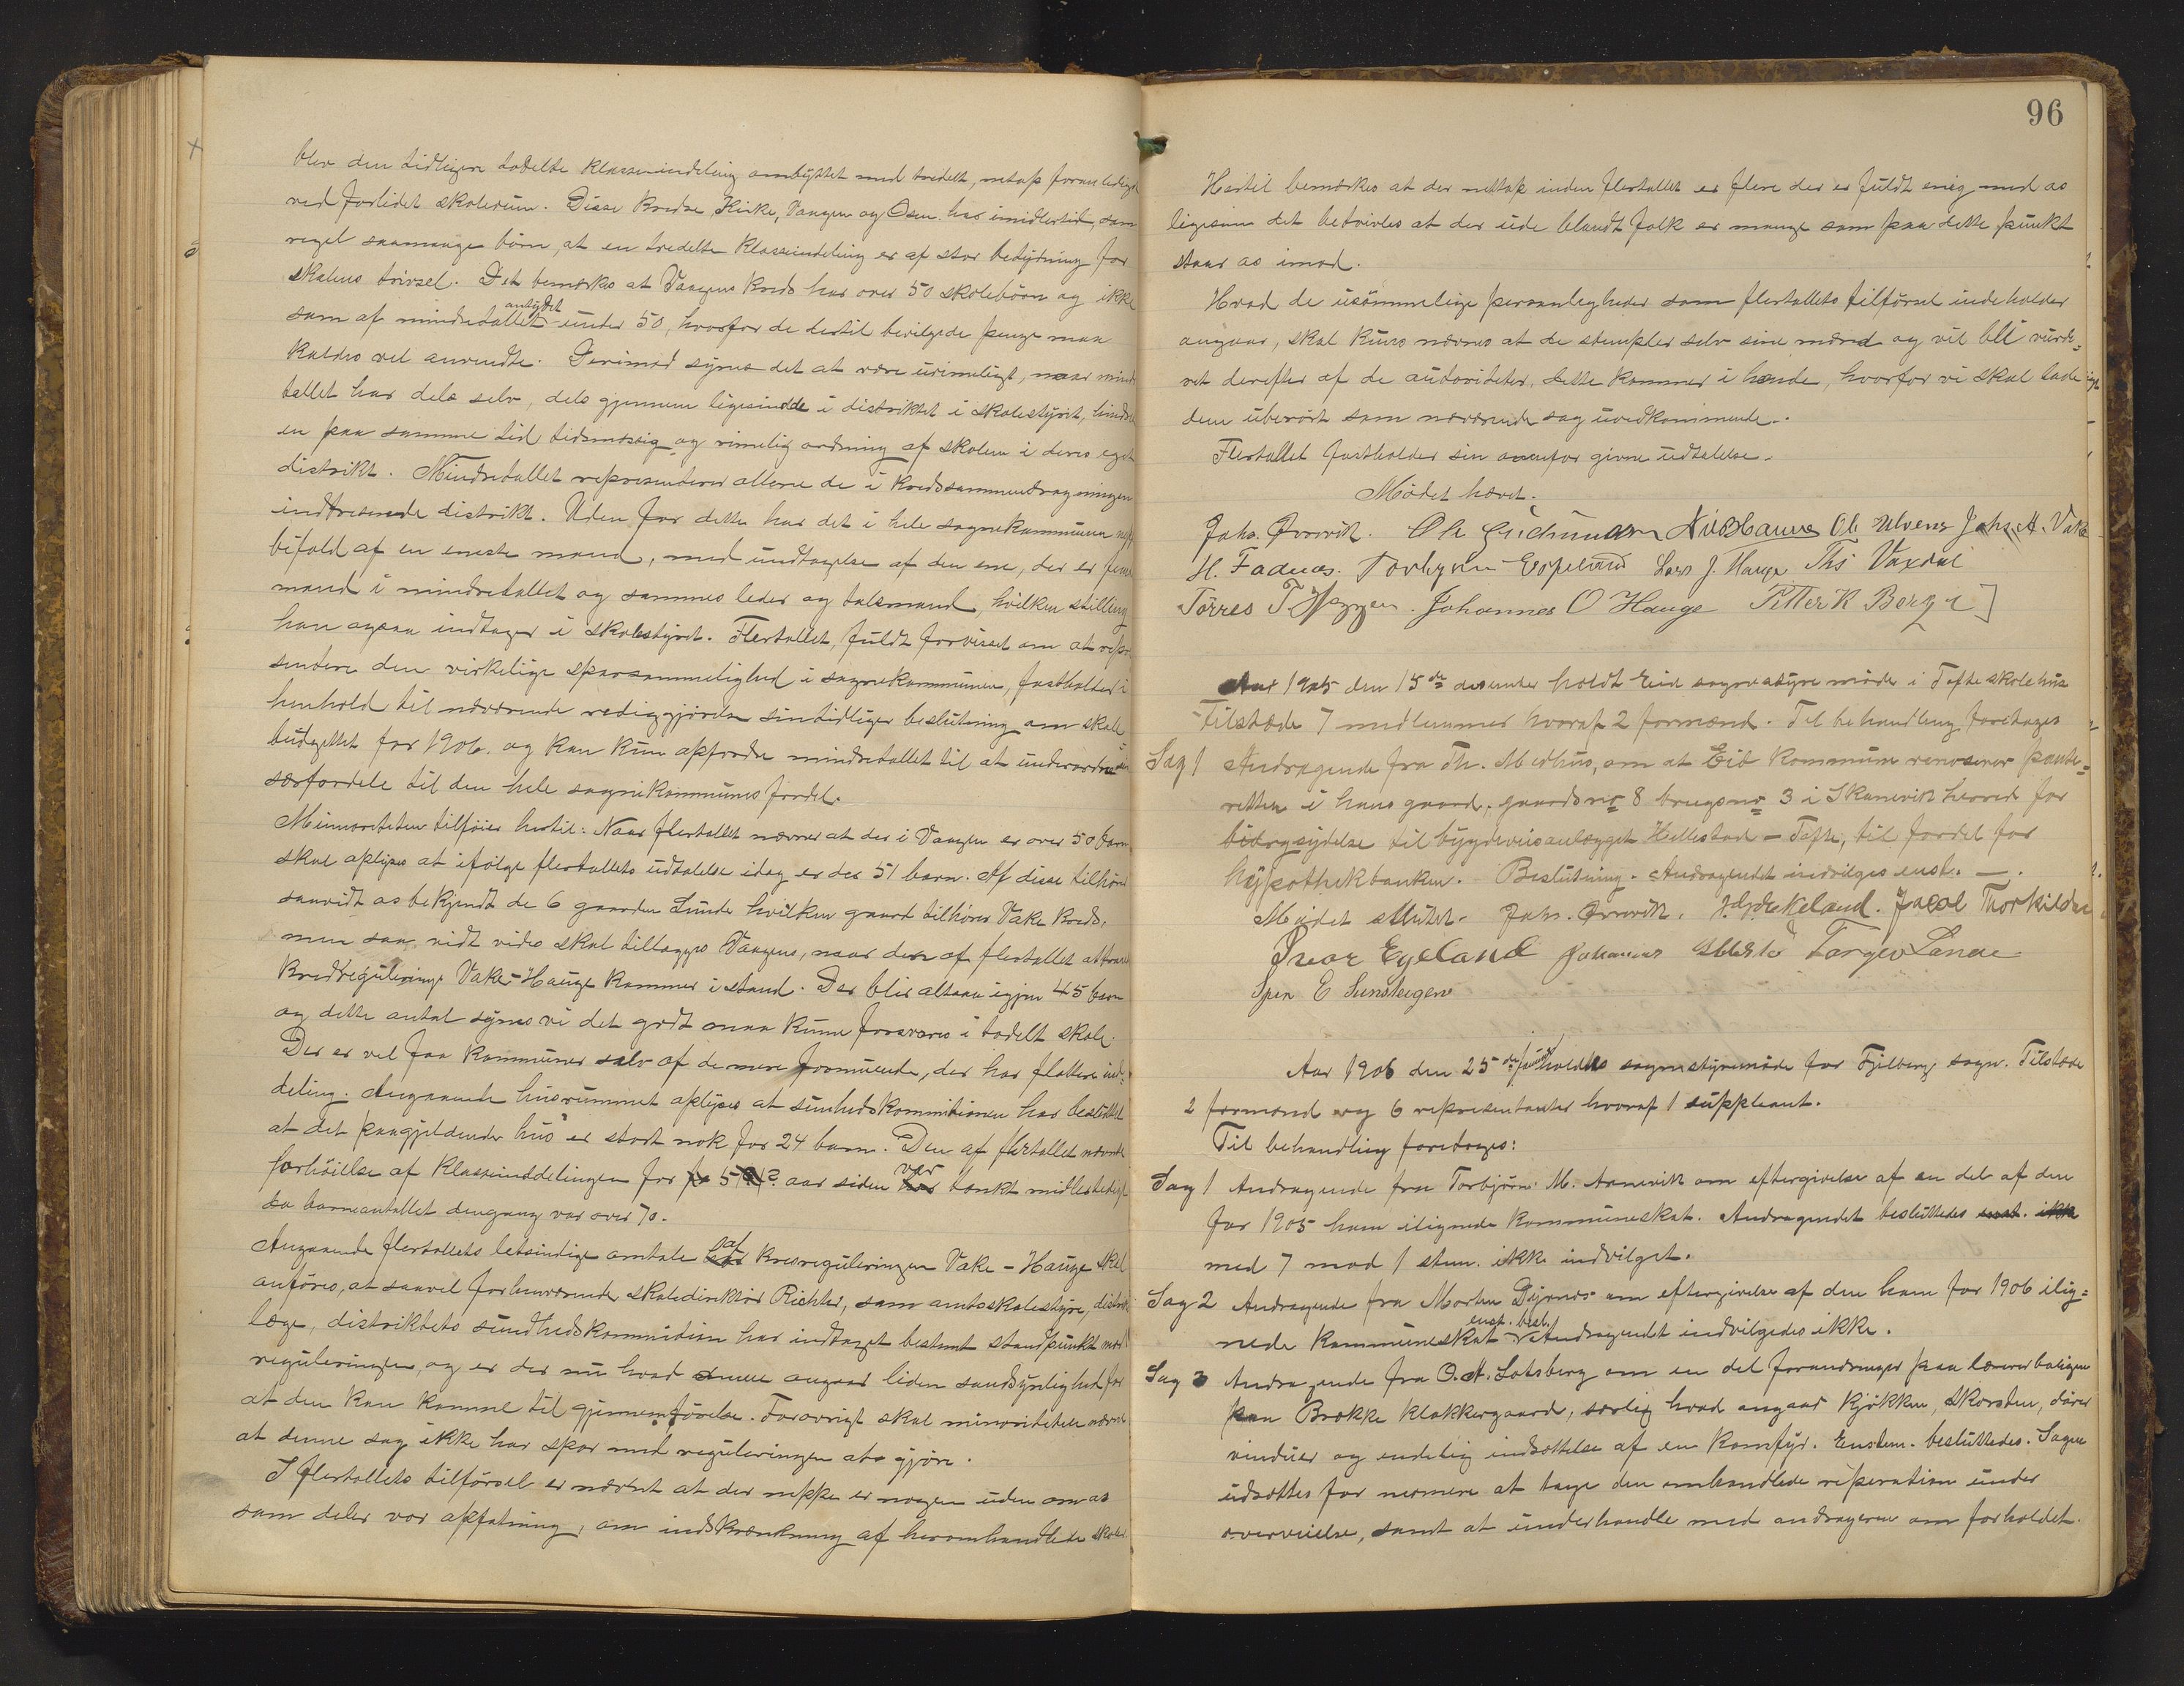 blev den tidligere todelte klasseinddeling ombyttet med tredelt, netop foranlediget
ved forlidet skolerum. Disse kredse, Kirke, Vaagen og Osen har imidlertid, som
regel saamange børn, at en tredelte klasseindeling er af stor betydning for
skolens trivsel. Det bemærkes at Vaagens kreds har over 50 skolebørn og ikke
som af mindretallet antydet under 50, hvorfor de dertil bevilgede penge maa
kaldes vel anvendte. Derimod synes det at være urimeligt, naar mindre
tallet har dels selv, dels gjennem ligesindde i distriktet i skolestyret, hindret
en paa samme tid tidsmæssig og rimelig ordning af skolen i deres eget
distrikt. Mindretallet representerer allene de i kredssammendragningen
indtreserede distrikt. Uden for dette har det i hele sognekommunen
bifald af en eneste mand, med undtagelse af den ene, der er
mand i mindretallet og sammes leder og talsmand, hvilken stilling
han ogsaa indtager i skolestyret. Flertallet, fuldt forvisset om at repre
sentere den virkelige sparsommelighed i sognekommunen, fastholder i
henhold til nærværende redegjørelse sin tidligere beslutning om skole
budgettet for 1906. og kan kun opfordre mindretallet til at underordne
særfordele til den hele sognekommunes fordel.
Minnoriteten tilføier hertil: Naar flertallet nævner at der i Vaagen er over 50 barn
skal oplyses at ifølge flertallets udtalelse idag er der 51 barn. Af disse tilhører
saavidt os bekjendt de 6 gaarden Lunde hvilken gaard tilhører Vake kreds,
men saa vidt vides skal tillægges Vaagens, naar den af flertallet attraaede
kredsregulering Vake-Hauge kommer istand. Der blir altsaa igjen 45 barn
og dette antal synes vi det godt maa kunne forsvares i todelt skole.
Der er vel faa kommuner selv af de mere formuende, der har flottere ind-
deling. Angaaende husrummet oplyses at sunhedskommitionen har besluttet
at det paagjeldende hus er stort nok for 24 barn. Den af flertallet nævnte
forhøielse af klasseinddelingen for 5 ? aar siden var tænkt midlertidig
da barneantallet dengang var over 70.
Angaaende flertallets letsindige omtale af kredsreguleringen Vake-Hauge skal
anføres, at saavel forhenværende skoledirektør Richter, som amtsskolestyre, distrikts
læge, distriktets sundhedskommition har indtaget bestemt standpunkt mod
reguleringen, og er der nu hvad denne angaar liden sandsynlighed for
at den kan komme til gjennemførelse. Forøvrigt skal minoriteten nævne
at denne sag ikke har spor med reguleringen at gjøre.
I flertallets tilførsel er nævnt at der neppe er nogen uden om os
som deler vor opfatning, om indskrænkning af heromhandlede skoler
96
Hertil bemærkes at der nettop inden flertallet er flere der er fuldt enig med os
ligesom det betvivles at der ude blandt folk er mange som paa dette punkt
staar os imod.
Hvad de usømmelige personlegheder som flertallets tilførsel indeholder
angaar, skal kuns nævnes at de stempler selv sine mænd og vil bli vurde-
ret derefter af de autoriteter, dette kommer i hænde, hvorfor vi skal lade
dem uberørt som nærværende sag uvedkommende.
Flertallet fastholder sin ovenfor givne udtalelse.
Mødet hævet.
Johs. Ørrevik. Ole Gudmundsen Ol. Ulvenes Johs. A. Vake
H. Fadnes. Torbjørn Espeland Lars J. Hauge Ths Vaxdal
Tørres T Heggen. Johannes O Hauge Petter K Berge
Aar 1905 den 15de desember holdt Eid sognestyre møde i Tofte skolehus
Tilstæde 7 medlemmer hvoraf 2 formænd. Til behandling foretages
Sag 1 Andragende fra Th. Medhus, om at Eid kommune renoserer pante-
retten i hans gaard, gaardsno 8 brugsno 3 i Skanevik herred for
bidragsydelse til bygdeveisanlægget Hellestad - Tofte, til fordel for
hypothekbanken. Beslutning. Andragendet indvilges enst. —.
Mødet sluttet. Johs. Ørrevik. Jacob Thorkildsen
Ivar Egeland Johannes
E Sunsteigen
Aar 1906 den 25de holdtes sognestyremøde for Fjelberg sogn. Tilstæde
2 formænd og 6 representanter hvoraf 1 suppleant.
Til behandling foretages:
Sag 1 Andragende fra Torbjørn M. Arnevik om eftergivelse af en del af den
for 1905 ham ilignede kommuneskat. Andragendet besluttedes enst. ikke
med 7 mod 1 stem. ikke indvilget.
Sag 2 Andragende fra Morten Djønes om eftergivelse af den ham for 1906 ilig-
nede kommuneskat enst. besl. Andragendet indvilgedes ikke.
Sag 3 Andragende fra O. A. Lotsberg om en del forandringer paa lærerboligen
paa Brække klokkergaard, særlig hvad angaar kjøkken, skorsten, dører
vinduer og endelig indsættelse af en komfyr. Enstem. besluttedes. Sagen
udsættes for nærmere at tage den omhandlede reperation under
overveielse, samt at underhandle med andrageren om forholdet.